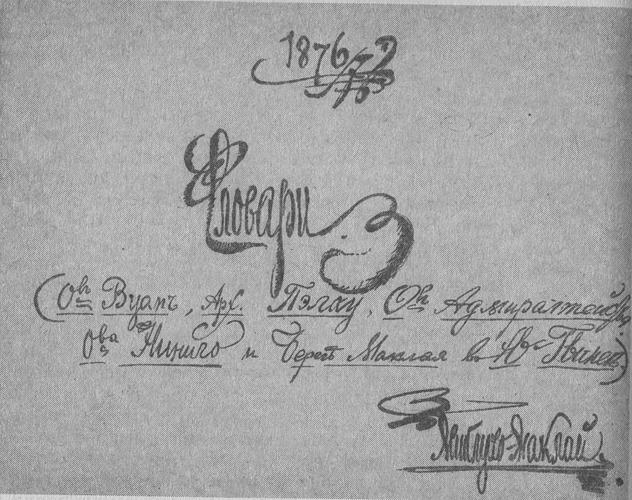 1876/
Словари
(Овъ Вуапъ, Арх. Пэлау, Овъ Адмиралтейства
Ова Ниниго и Берегъ Маклая въ Нвой Гвинеѣ)
Миклухо-Маклай